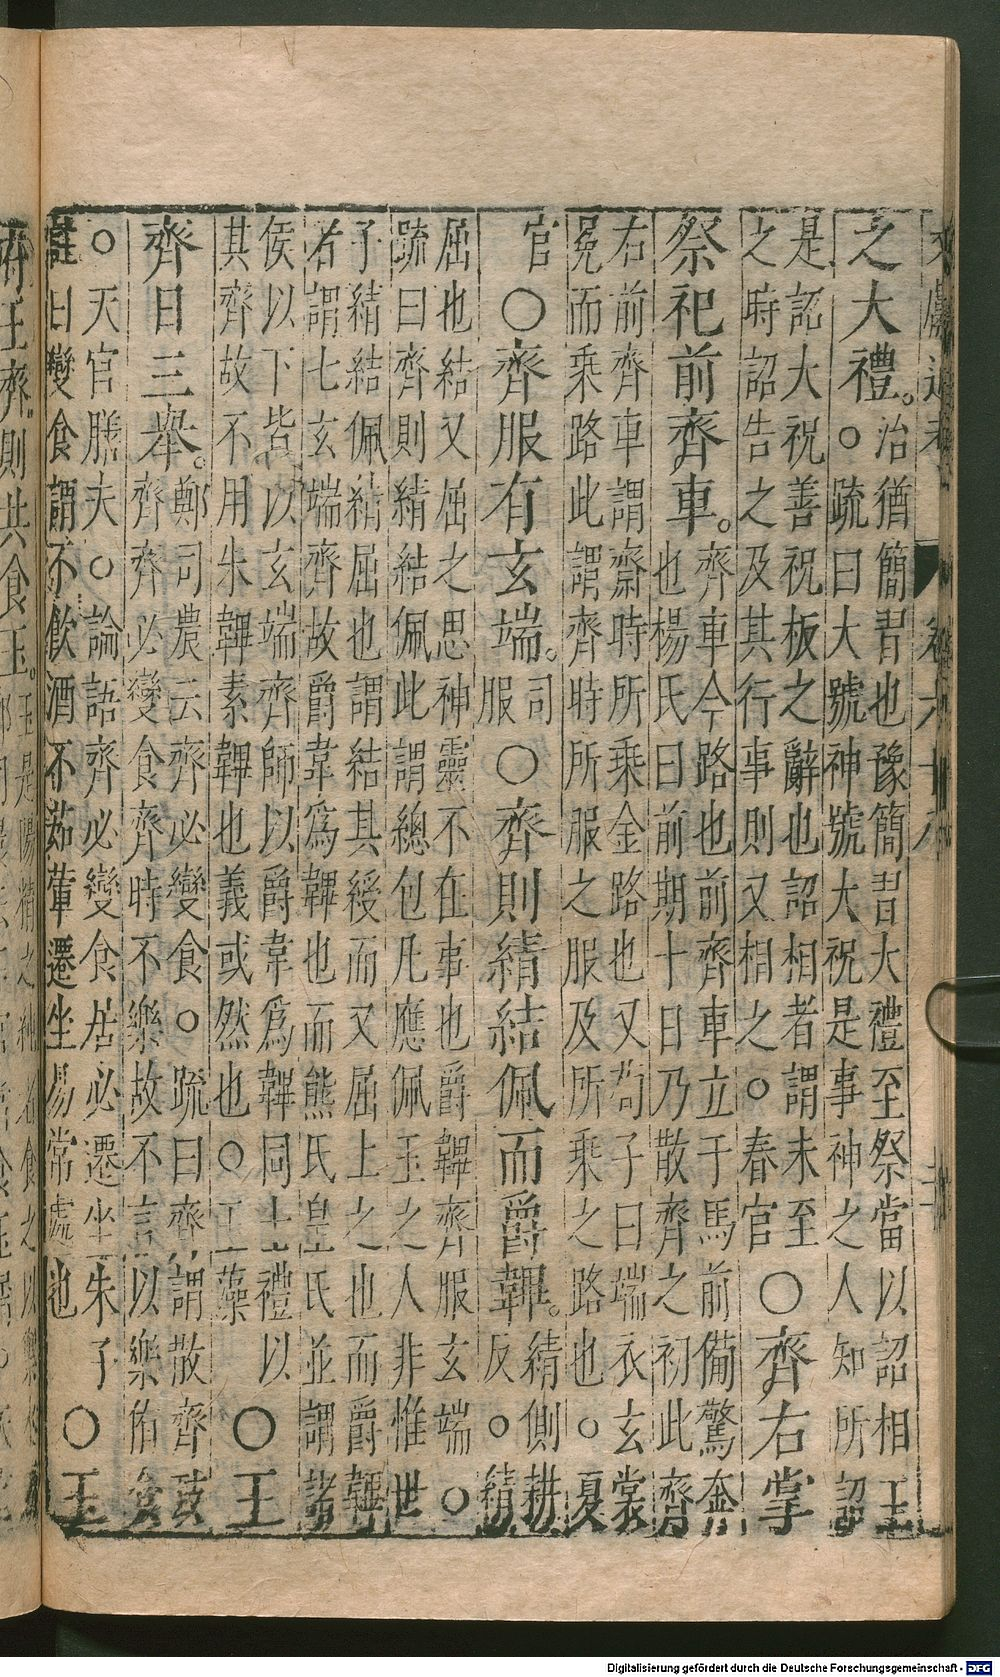 文獻通考 卷六十八
之大禮。治猶簡習也豫簡習大禮至祭當以詔相王
○疏曰大號神號大祝是事神之人知所詔
是詔大祝善祝板之辭也詔相者謂未至
之時詔告之及其行事則又相之○春官
○齊右掌
祭祀前齊車。齊車今路也前齊車立于馬前備驚奔
也楊氏曰前期十日乃散齊之初此齊
右前齊車謂齋時所乘金路也又荀子曰端衣玄裳
冕而乘路此謂齊時所服之服及所乘之路也○夏
官○齊服有玄端。司服○齊則綪結佩而爵韠。綪側耕
反○綪
屈也結又屈之思神靈不在事也爵韠齊服玄端○
疏曰齊則綪結佩此謂總包凡應佩玉之人非惟世
子綪結佩綪屈也謂結其綬而又屈上之也而爵韠
者謂七玄端齊故爵韋為韠也而熊氏皇氏並謂諸
侯以下皆以玄端齊師以爵韋為韠同士禮以
其齊故不用朱韠素韠也義或然也○玉藻
○王
齊日三舉。鄭司農云齊必變食○疏曰齊謂散齊致
齊齊必變食齊時不樂故不言以樂侑食
○天官膳夫○論語齊必變食居必遷坐朱子
註曰變食謂不飲酒不茹葷遷坐易常處也
○玉
府王齊則共食玉。玉是陽精之純者食之以禦水
Digitalisierung gefördert durch die Deutsche Forschungsgemeinschaft - DFG